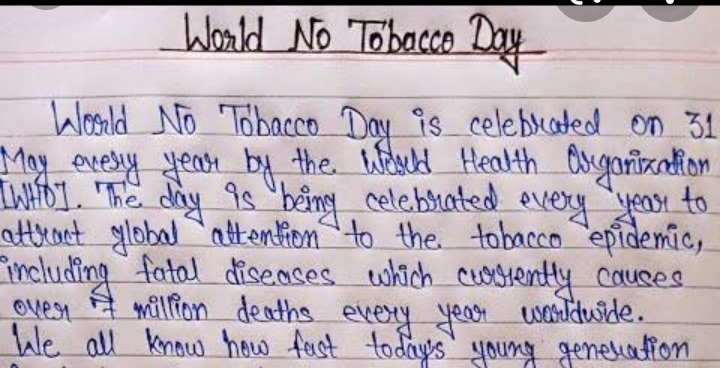 World No Tobacco Day
World No Tobacco Day is celebrated on 31
May every year by the World Health Organization
[WHO]. The day is being celebrated every year to
attract global attention to the tobacco epidemic,
including fatal diseases which currently causes
over 7 million deaths every year worldwide.
We all know how fast today's young generation